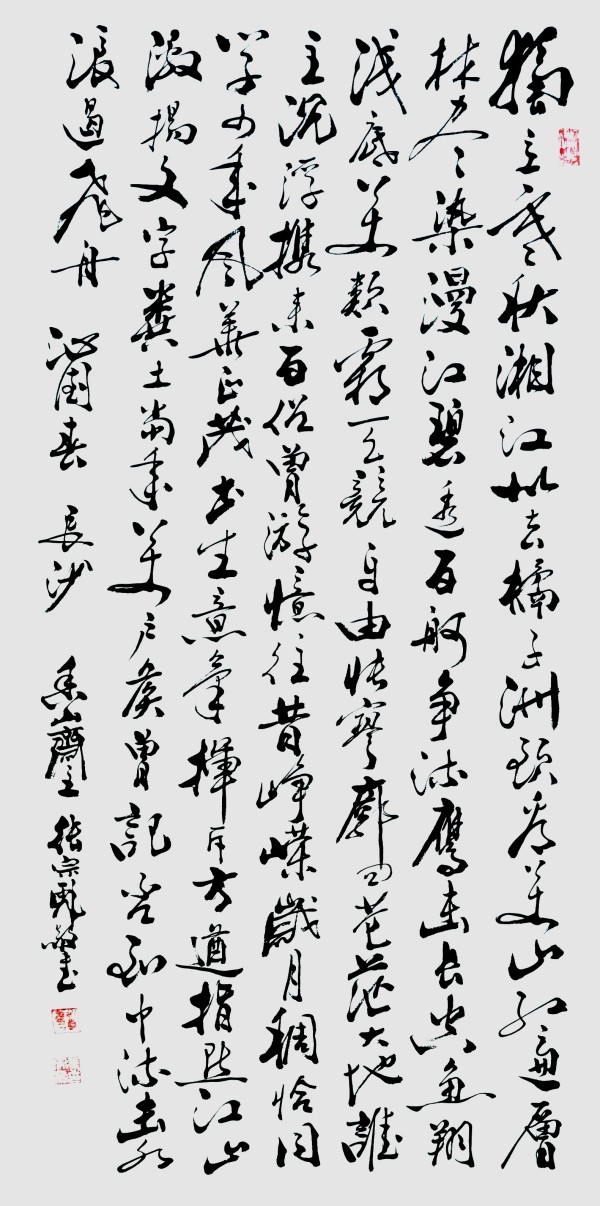 獨立寒秋湘江北去橘子洲頭看萬山红遍層
林尽染漫江碧透百舸争流鷹击长空鱼翔
浅底萬類霜天競自由怅寥廓问苍茫大地誰
主沉浮携来百侣曾游憶往昔峥嵘歲月稠恰同
学少年风華正茂书生意氣揮斥方遒指點江山
激揚文字糞土當年萬户侯曾記否到中流击水
浪遏飛舟 沁園春 長沙 香山齋主 張宗敬书